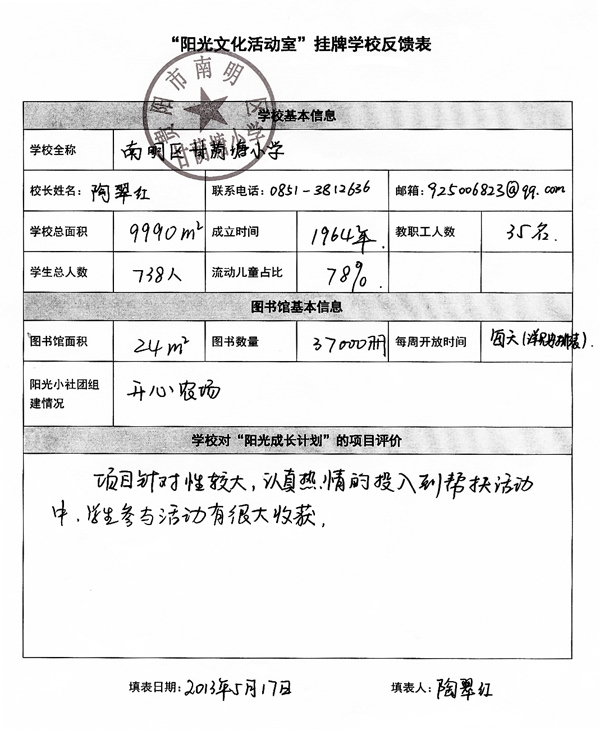 “阳光文化活动室”挂牌学校反馈表
贵阳市南明区
甘荫塘小学
学校基本信息
学校全称 南明区甘荫塘小学
校长姓名: 陶翠红 联系电话: 0851-3812636 邮箱: 925006823@qq.com
学校总面积 9990m² 成立时间 1964年. 教职工人数 35名.
学生总人数 738人 流动儿童占比 78%.
图书馆基本信息
图书馆面积 24m² 图书数量 37000册 每周开放时间 每天(详见安排表).
阳光小社团组
建情况 开心农场
学校对“阳光成长计划”的项目评价
项目针对性较大,认真热情的投入到帮扶活动
中.学生参与活动有很大收获.
填表日期: 2013年5月17日 填表人: 陶翠红